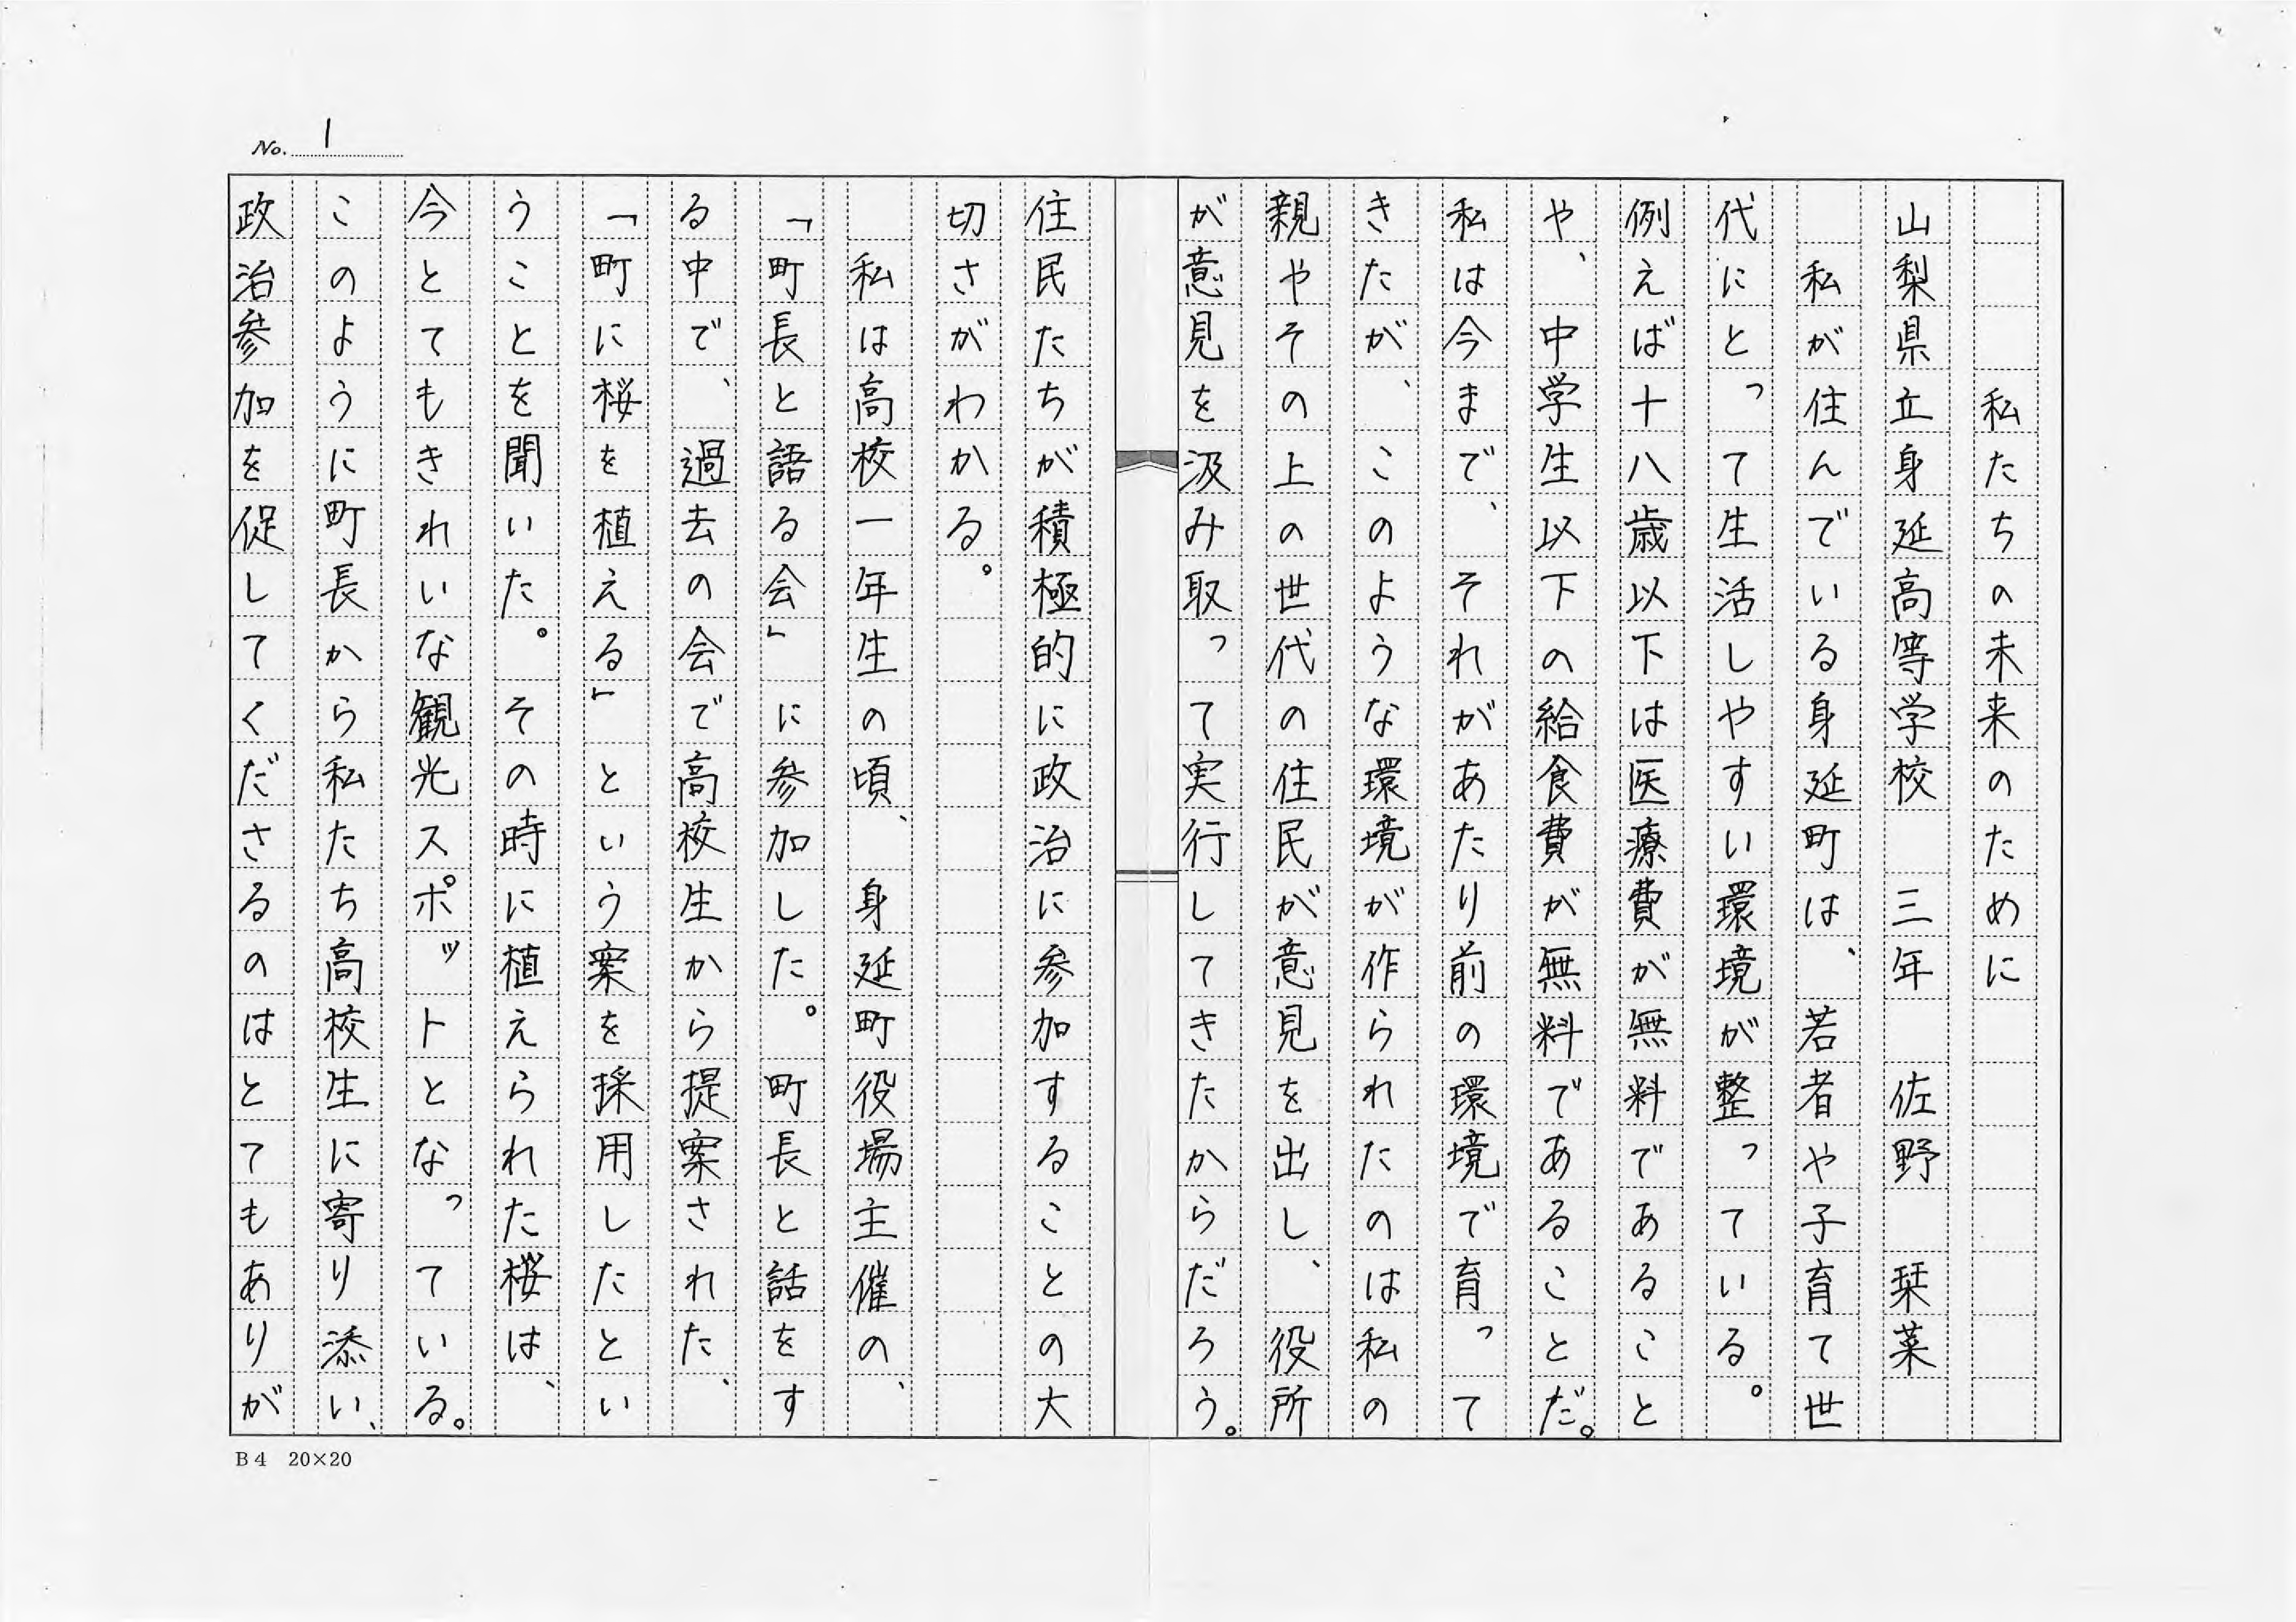 No. 1
私たちの未来のために
山梨県立身延高等学校 三年 佐野 栞菜
私が住んでいる身延町は、若者や子育て世
代にとって生活しやすい環境が整っている。
例えば十八歳以下は医療費が無料であること
や、中学生以下の給食費が無料であることだ。
私は今まで、それがあたり前の環境で育って
きたが、このような環境が作られたのは私の
親やその上の世代の住民が意見を出し、役所
が意見を汲み取って実行してきたからだろう。
住民たちが積極的に政治に参加することの大
切さがわかる。
私は高校一年生の頃、身延町役場主催の、
「町長と語る会」に参加した。町長と話をす
る中で、過去の会で高校生から提案された、
「町に桜を植える」という案を採用したとい
うことを聞いた。その時に植えられた桜は、
今とてもきれいな観光スポットとなっている。
このように町長から私たち高校生に寄り添い、
政治参加を促してくださるのはとてもありが
B4 20×20